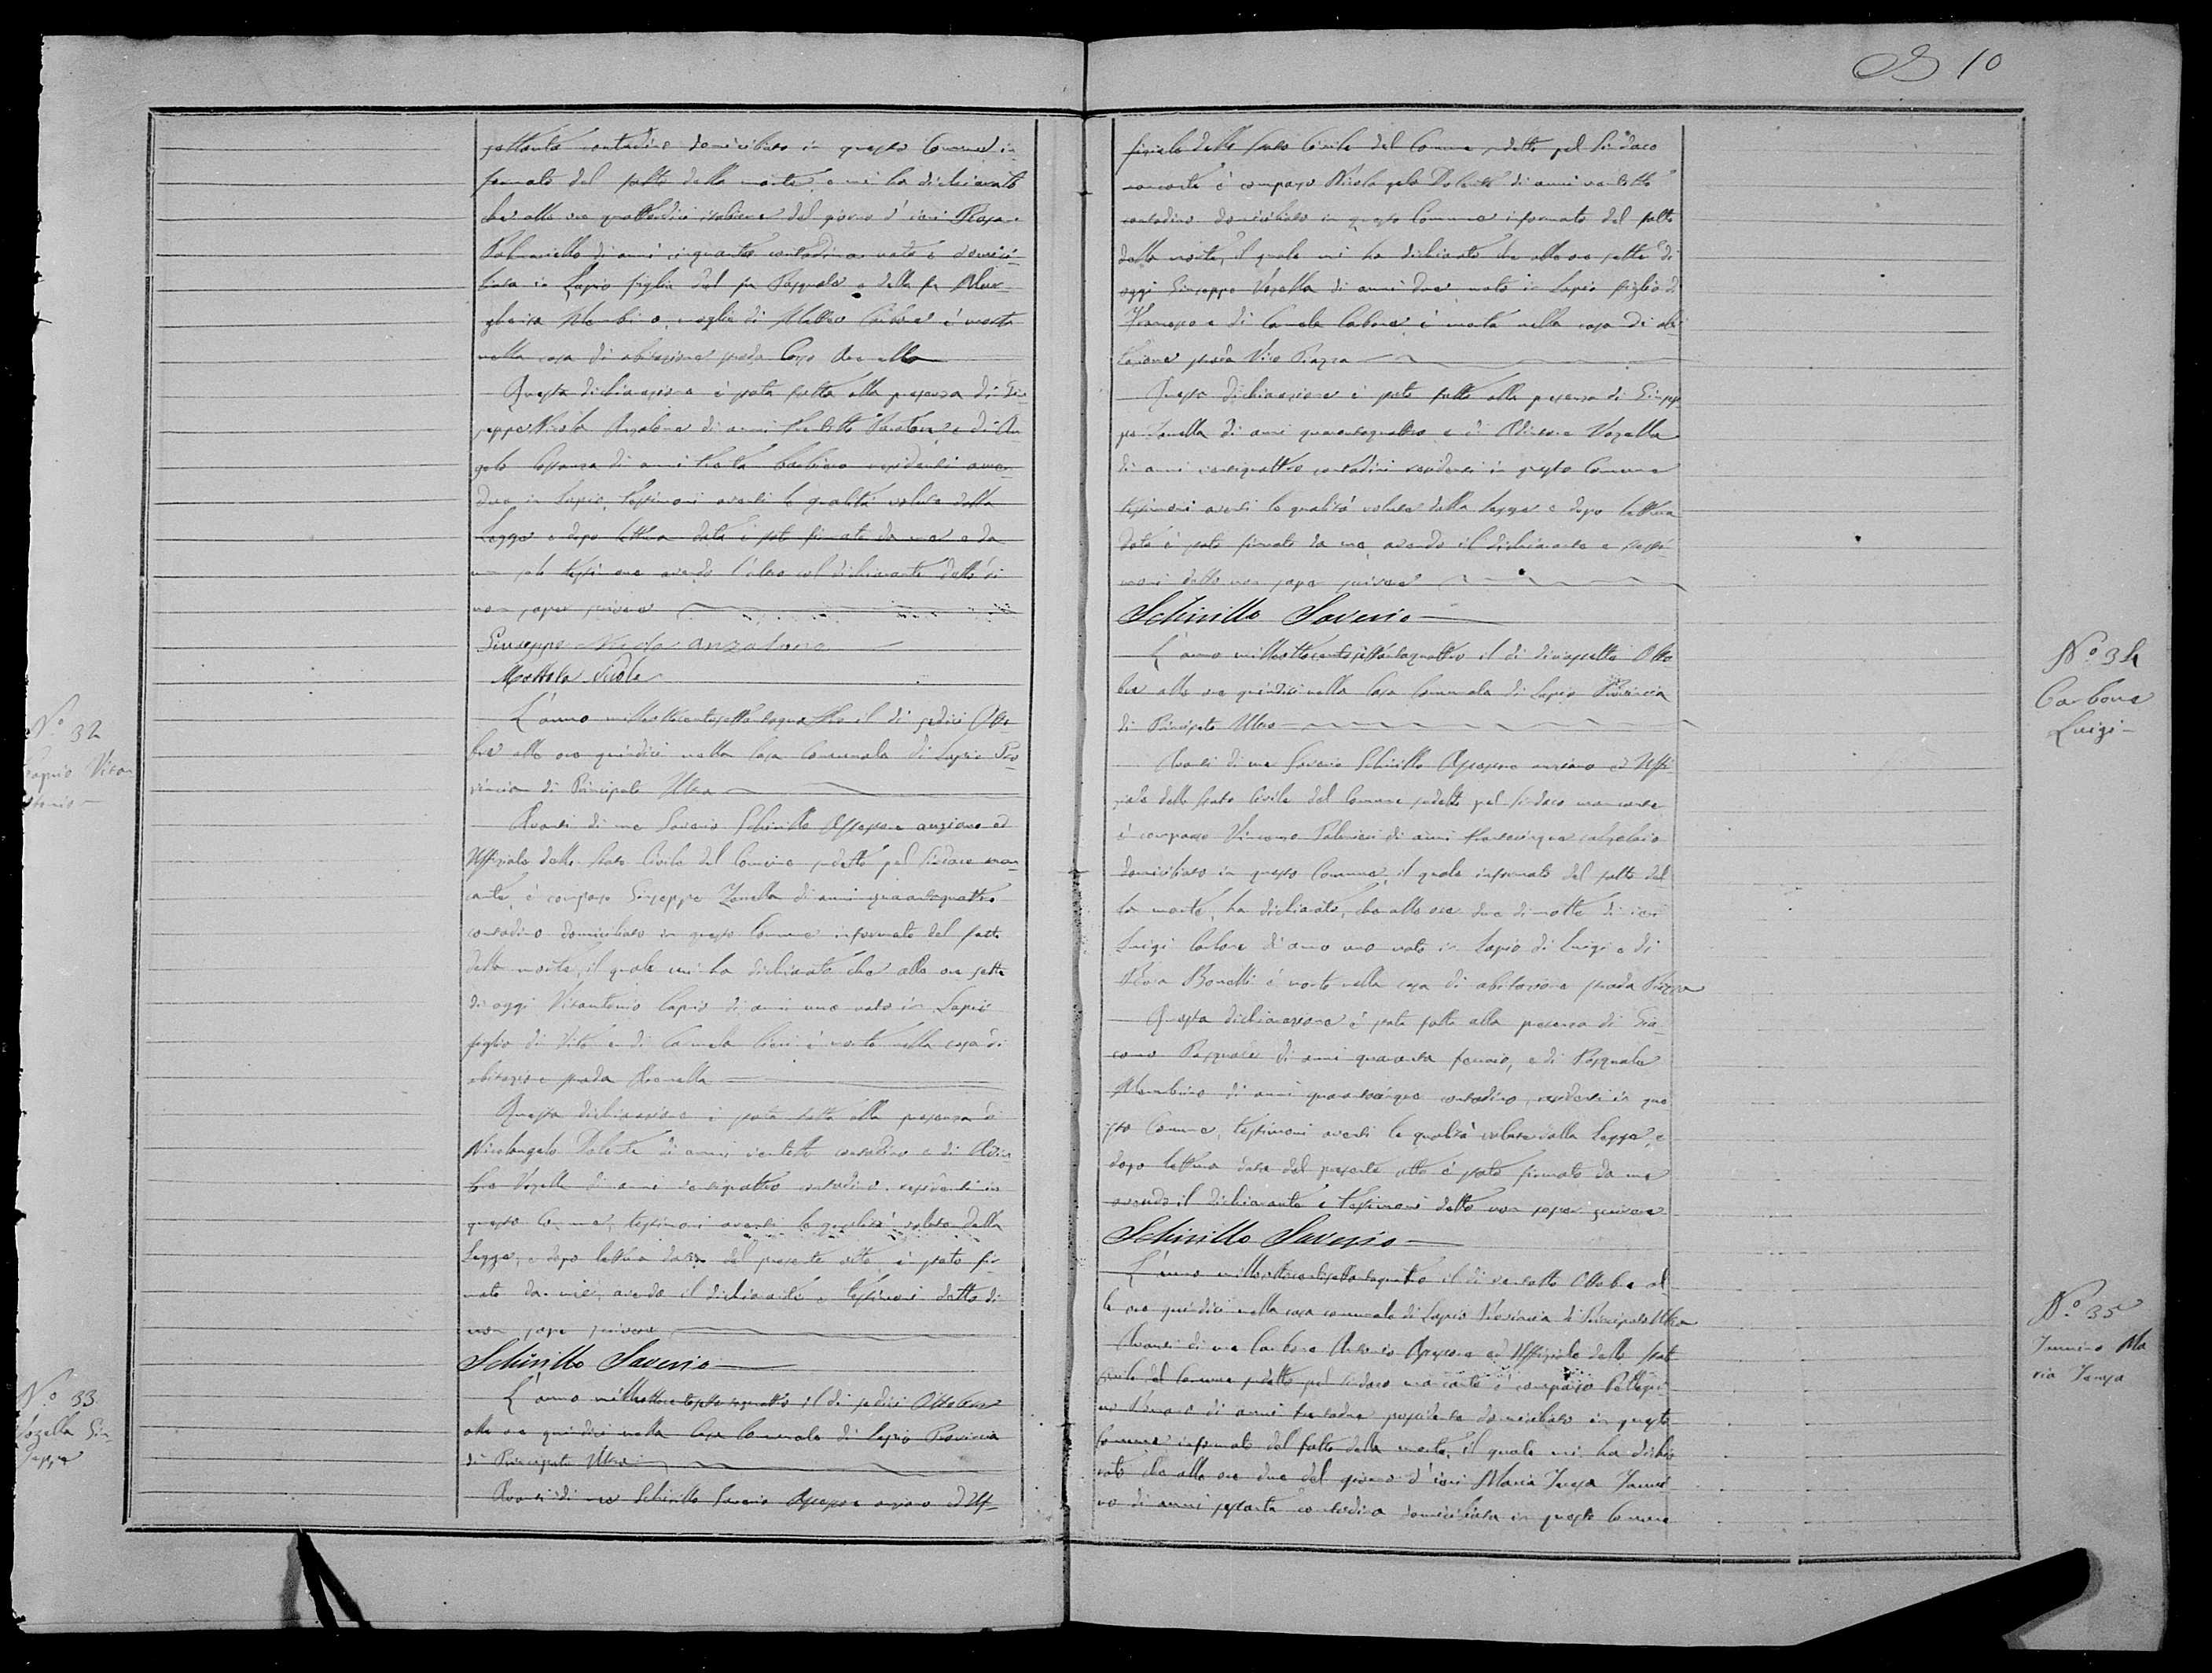 10
settanta contadino domiciliato in questo Comune in-
formato del fatto della morte, e mi ha dichiarato
che alle ore quattordici italiane del giorno d'ieri Rosa
Palmariello di anni cinquanta contadina nata e domici-
liata in Lapio figlia del fu Pasquale e della fu Mar-
gherita moglie di Matteo è morta
nella casa di abitazione strada Capo
Questa dichiarazione è stata fatta alla presenza di Giu-
seppe Nicola Anzalone di anni trentotto e di An-
gelo Costanza di anni trenta barbiere residenti amen-
due in Lapio, testimoni aventi le qualità volute dalla
Legge e dopo lettura data è stato firmato da me e da
un solo testimone avendo l'altro col dichiarante detto di
non saper scrivere
Giuseppe Nicola Anzalone
Mottola Nicola
N.º 32
Caprio Vitan-
tonio
L'anno milleottocentosettantaquattro il dì sedici Otto-
bre alle ore quindici nella Casa Comunale di Lapio Pro-
vincia di Principato Ultra
Avanti di me Saverio Schirillo Assessore anziano ed
Uffiziale dello Stato Civile del Comune sudetto pel Sindaco man-
cante, è comparso Giuseppe Zanella di anni quarantaquattro
contadino domiciliato in questo Comune informato del fatto
della morte, il quale mi ha dichiarato che alle ore sette
di oggi Vitantonio Caprio di anni uno nato in Lapio
figlio di Vito e di Carmela è morto nella casa di
abitazione strada
Questa dichiarazione è stata fatta alla presenza di
Nicolangelo Dolente di anni ventotto contadino e di
Vozella di anni ventiquattro contadino residenti in
questo Comune, testimoni aventi le qualità volute dalla
Legge, e dopo lettura data del presente atto è stato fir-
mato da me, avendo il dichiarante e testimoni detto di
non saper scrivere
Schirillo Saverio
N.º 33
Vozella Giu-
seppe
L'anno milleottocentosettantaquattro il dì sedici Ottobre
alle ore quindici nella Casa Comunale di Lapio Provincia
di Principato Ultra
Avanti di me Schirillo Saverio Assessore anziano ed Uf-
fiziale dello Stato Civile del Comune sudetto pel Sindaco
mancante è comparso Nicolangelo Dolente di anni ventotto
contadino domiciliato in questo Comune informato del fatto
della morte, il quale mi ha dichiarato che alle ore sette di
oggi Giuseppe Vozella di anni due nato in Lapio figlio di
Francesco e di Carmela Carbone, è morto nella casa di abi-
tazione strada Vico Piazza
Questa dichiarazione è stata fatta alla presenza di Giusep-
pe Zanella di anni quarantaquattro e di Vozella
di anni ventiquattro contadini residenti in questo Comune
testimoni aventi le qualità volute dalla Legge e dopo lettura
data è stato firmato da me, avendo il dichiarante e testi-
moni detto non saper scrivere
Schirillo Saverio
N.º 34
Carbone
Luigi
L'anno milleottocentosettantaquattro il dì diciassette Otto-
bre alle ore quindici nella Casa Comunale di Lapio Provincia
di Principato Ultra
Avanti di me Saverio Schirillo Assessore anziano ed Uffi-
ziale dello Stato Civile del Comune sudetto pel Sindaco mancante
è comparso Vincenzo di anni trentacinque calzolaio
domiciliato in questo Comune, il quale informato del fatto del-
la morte, ha dichiarato, che alle ore due di notte di ieri
Luigi Carbone di anno uno nato in Lapio di Luigi e di
Bonetti è morto nella casa di abitazione strada Piazza
Questa dichiarazione è stata fatta alla presenza di Gia-
como Pasquale di anni quaranta, e di Pasquale
di anni quarantacinque contadino, residenti in que-
sto Comune, testimoni aventi le qualità volute dalla Legge, e
dopo lettura data del presente atto è stato firmato da me
avendo il dichiarante e testimoni detto non saper scrivere
Schirillo Saverio
N.º 35
Iannino Ma
ria Teresa
L'anno milleottocentosettantaquattro il dì ventotto Ottobre al-
le ore quindici nella casa comunale di Lapio Provincia di Principato Ultra
Avanti di me Carbone Antonio Assessore ed Uffiziale dello Stato
civile del Comune sudetto pel Sindaco mancante è comparso
di anni trentadue possidente domiciliato in questo
Comune informato del fatto della morte, il quale mi ha dichia-
rato che alle ore due del giorno d'ieri Maria Teresa Ianni-
no di anni sessanta contadina domiciliata in questo Comune